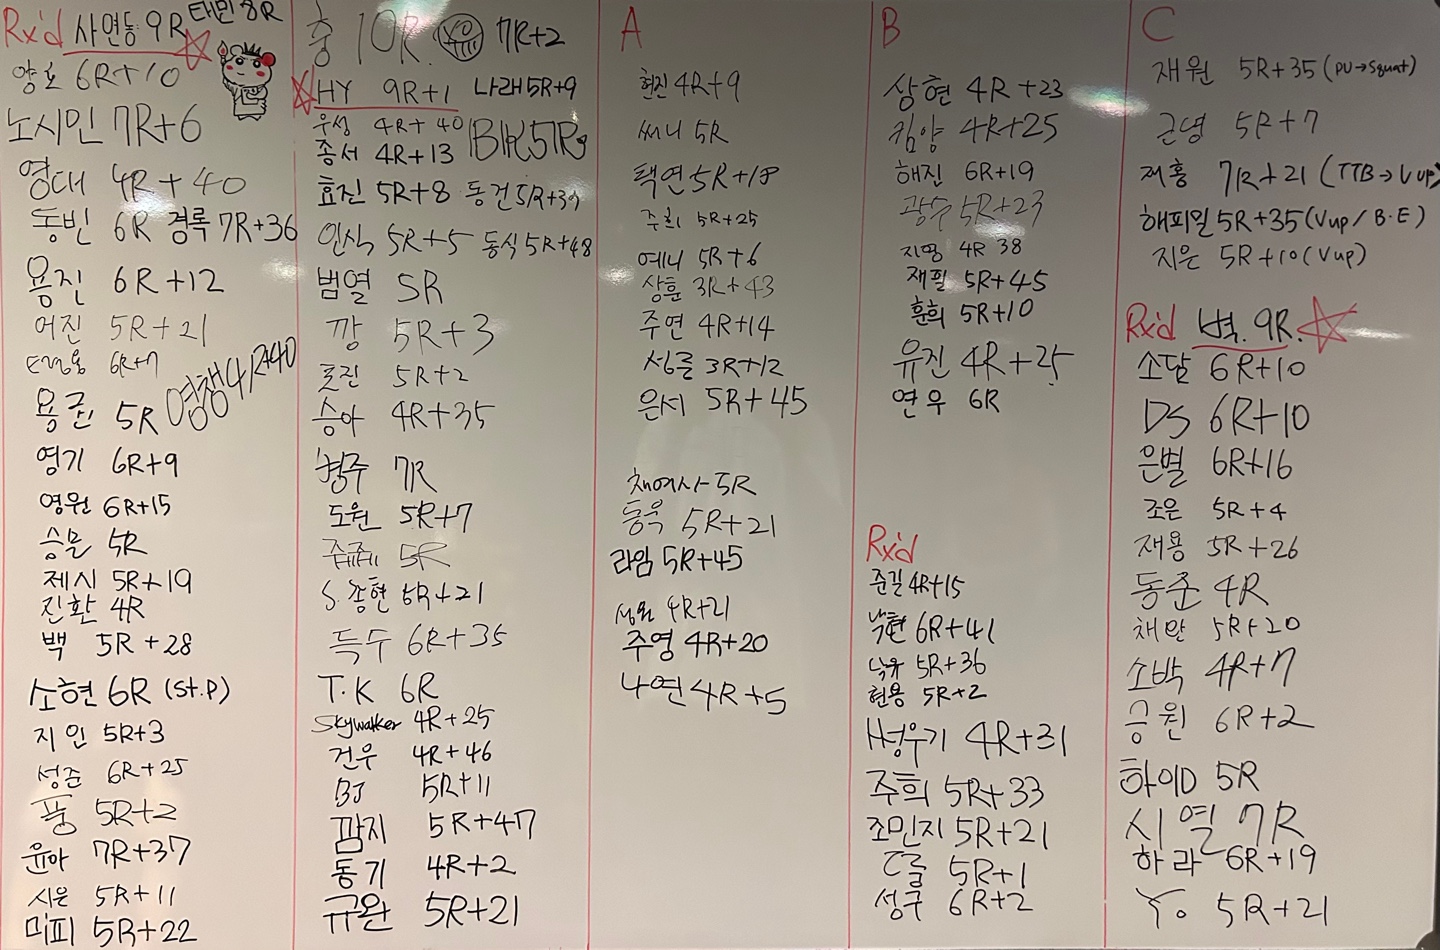 Rx'd 사연동 9R
태민 8R
양호 6R+10
노시민 7R+6
영대 4R+40
동빈 6R 경록 7R+36
용진 6R+12
어진 5R+21
6R+7
용군 5R 영쟁 4R+40
영기 6R+9
영원 6R+15
승문 5R
제시 5R+19
진환 4R
백 5R+28
소현 6R (St.P)
지인 5R+3
성준 6R+25
풍 5R+2
윤아 7R+37
시은 5R+11
미피 5R+22
충 10R. 7R+2
HY 9R+1 나래 5R+9
우성 4R+40
종서 4R+13 BK 5R
효진 5R+8 동건 5R+39
인식 5R+5 동식 5R+48
범열 5R
깡 5R+3
5R+2
승아 4R+35
형주 7R
도원 5R+7
쥬쥬 5R
S. 종현 5R+21
득수 6R+35
T.K 6R
Skywalker 4R+25
건우 4R+46
BJ 5R+11
깜지 5R+47
동기 4R+2
규완 5R+21
A
현진 4R+9
써니 5R
택연 5R+18
주희 5R+25
예니 5R+6
상훈 3R+43
주연 4R+14
3R+12
은서 5R+45
채여사 5R
동욱 5R+21
라임 5R+45
성원 4R+21
주영 4R+20
나연 4R+5
B
상현 4R+23
킴양 4R+25
해진 6R+19
광수 5R+23
지명 4R 38
재필 5R+45
훈희 5R+10
유진 4R+25
연우 6R
Rx'd
준길 4R+15
낙현 6R+41
5R+36
현용 5R+2
H성우기 4R+31
주희 5R+33
조민지 5R+21
5R+1
성구 6R+2
C
재원 5R+35 (PU→Squat)
근녕 5R+7
재홍 7R+21 (TTB→V up)
해피밀 5R+35 (Vup / B.E)
지은 5R+10 (Vup)
Rx'd 벽. 9R.
소담 6R+10
DS 6R+10
은별 6R+16
조은 5R+4
재용 5R+26
동준 4R
채만 5R+20
소박 4R+7
긍원 6R+2
하이D 5R
시열 7R
하라 6R+19
Yo 5R+21